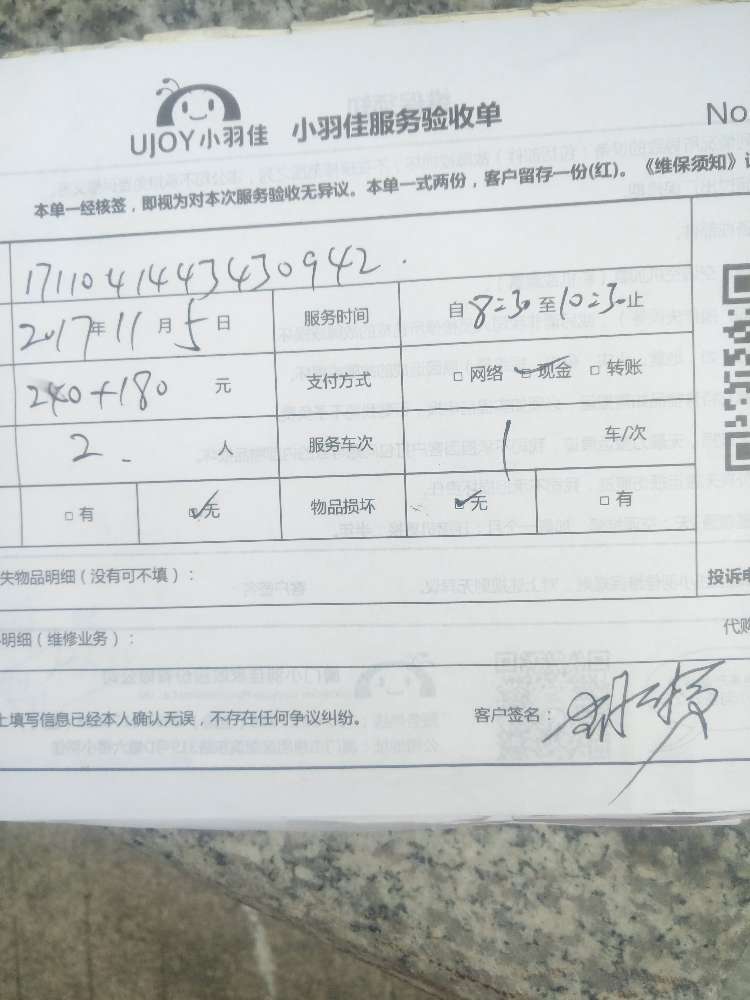 UJOY小羽佳 小羽佳服务验收单 No
本单一经核签，即视为对本次服务验收无异议。本单一式两份，客户留存一份(红)。《维保须知》
17110414434430942.
2017年11月5日 服务时间 自8:30至10:30止
240+180 元 支付方式 □ 网络 □ 现金 □ 转账
2. 人 服务车次 1 车/次
□ 有 □无 物品损坏 □无 □ 有
失物品明细（没有可不填）： 投诉电
明细（维修业务）： 代购
上填写信息已经本人确认无误，不存在任何争议纠纷。 客户签名：